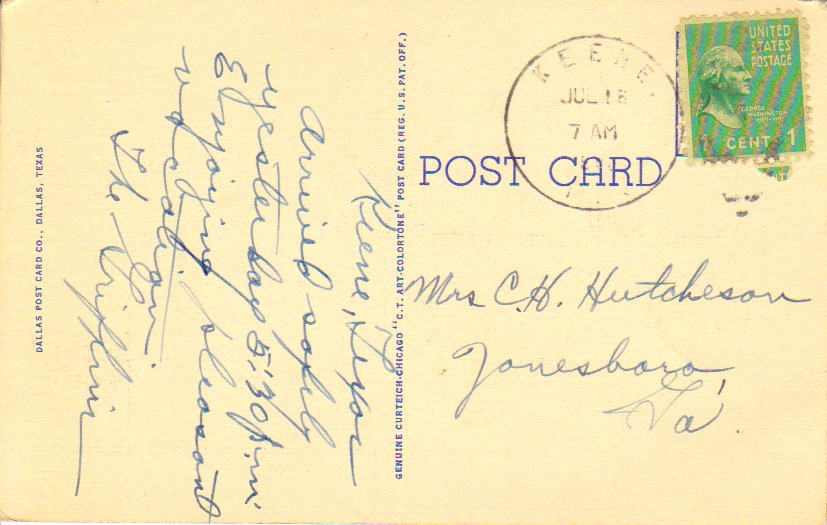 DALLAS POST CARD CO., DALLAS, TEXAS
Keene, Texas
Arrived safely
yesterday 5:30 P.m.
Enjoying pleasant
vacation.
The
GENUINE CURTEICH-CHICAGO "C.T. ART-COLORTONE" POST CARD (REG. U.S. PAT. OFF.)
POST CARD
KEENE
JUL 16
7 AM
UNITED
STATES
POSTAGE
GEORGE
WASHINGTON
1 CENT 1
Mrs C.H. Hutcheson
Jonesboro,
Ga.